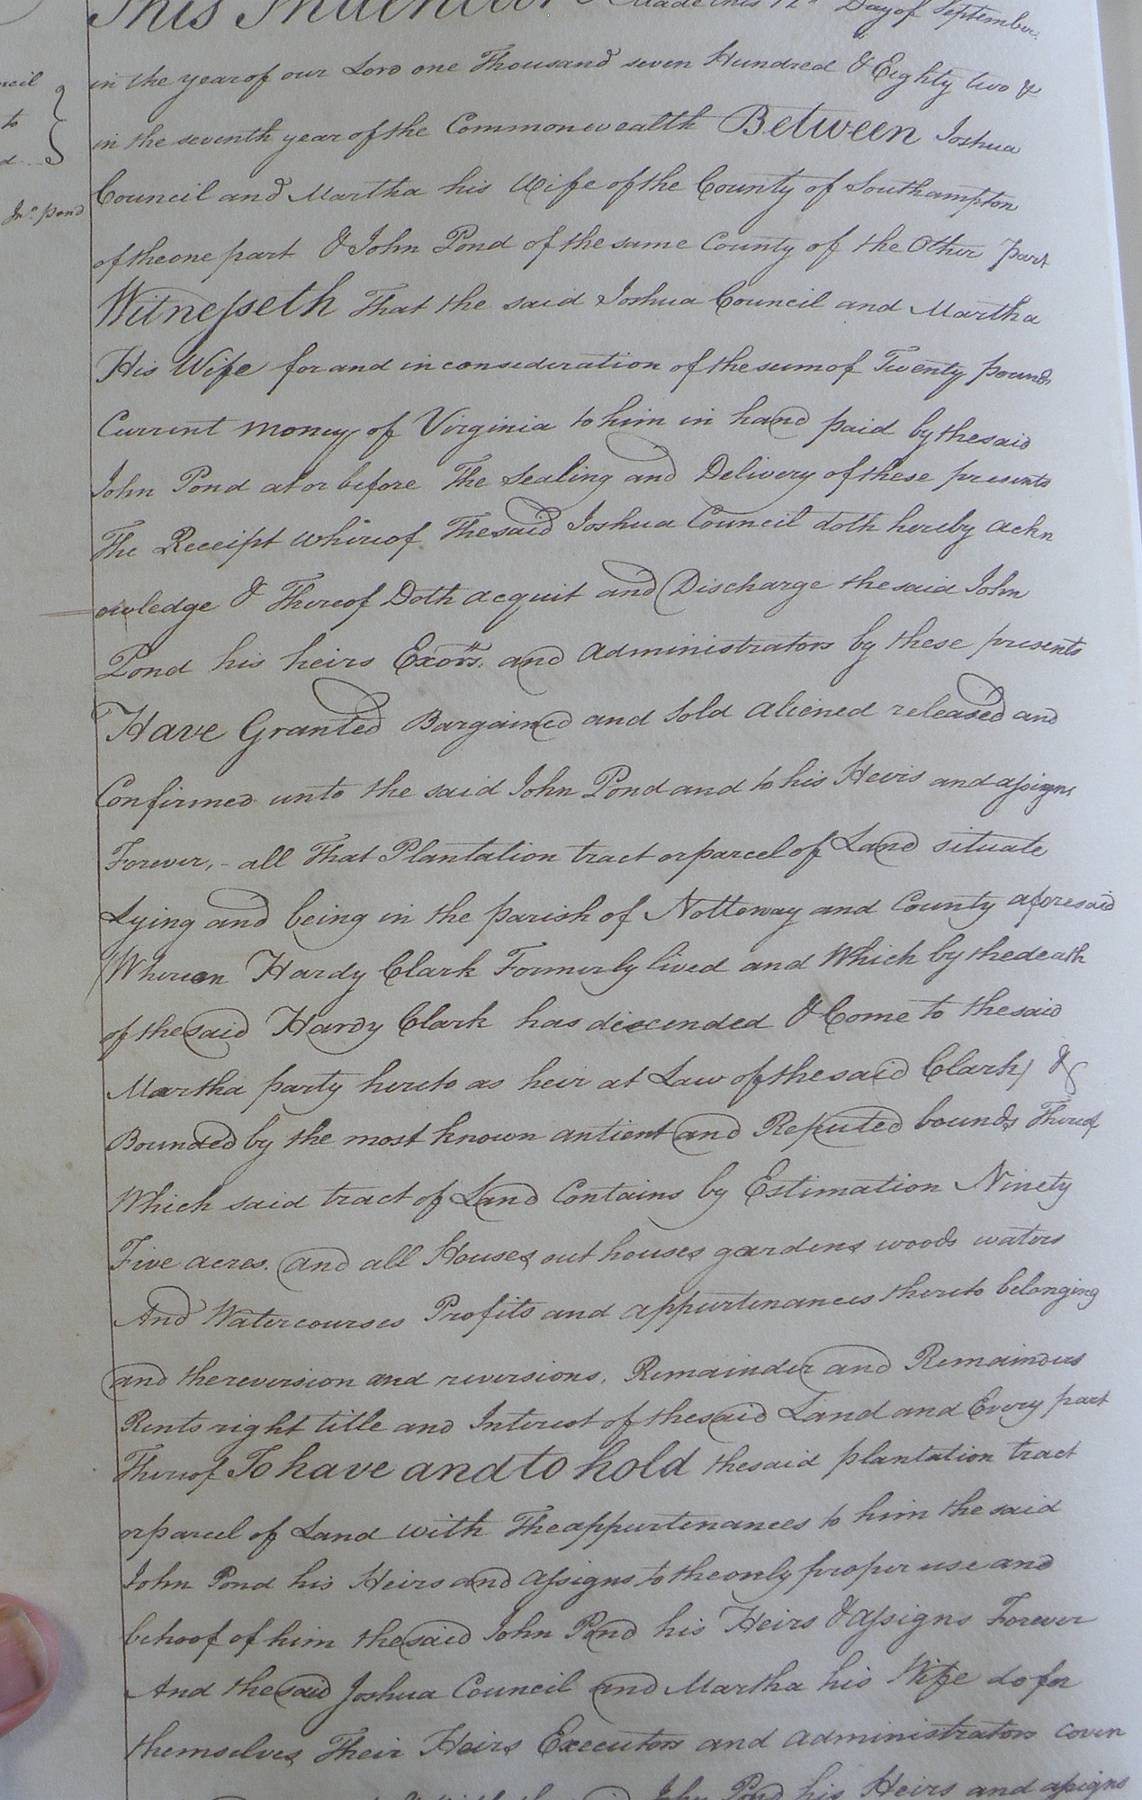 to
Jno. Pond
This Indenture Made this 12th Day of September
in the year of our Lord one Thousand seven Hundred & Eighty two &
in the seventh year of the Commonwealth Between Joshua
Council and Martha his Wife of the County of Southampton
of the one part & John Pond of the same County of the Other part
Witnesseth That the said Joshua Council and Martha
His Wife for and in consideration of the sum of Twenty pounds
Current money of Virginia to him in hand paid by the said
John Pond at or before The Sealing and Delivery of these presents
The Receipt whereof The said Joshua Council doth hereby ackn
owledge & Thereof Doth acquit and Discharge the said John
Pond his heirs Exors. and administrators by these presents
Have Granted Bargained and Sold aliened released and
Confirmed unto the said John Pond and to his Heirs and assigns
Forever, - all That Plantation tract or parcel of Land situate
Lying and being in the parish of Nottoway and County aforesaid
Whereon Hardy Clark Formerly lived and Which by the death
of the said Hardy Clark has descended & Come to the said
Martha party hereto as heir at Law of the said Clark) &
Bounded by the most known antient and Reputed bounds Thereof
Which said tract of Land Contains by Estimation Ninety
Five acres. and all Houses, out houses gardens woods waters
And Watercourses Profits and appurtenances thereto belonging
and the reversion and reversions, Remainder and Remainders
Rents right title and Interest of the said Land and Every part
Thereof To have and to hold the said plantation tract
or parcel of Land with The appurtenances to him the said
John Pond his Heirs and assigns to the only proper use and
behoof of him the said John Pond his Heirs & assigns Forever
And the said Joshua Council and Martha his Wife do for
themselves Their Heirs Executors and administrators coven
John Pond his Heirs and assigns